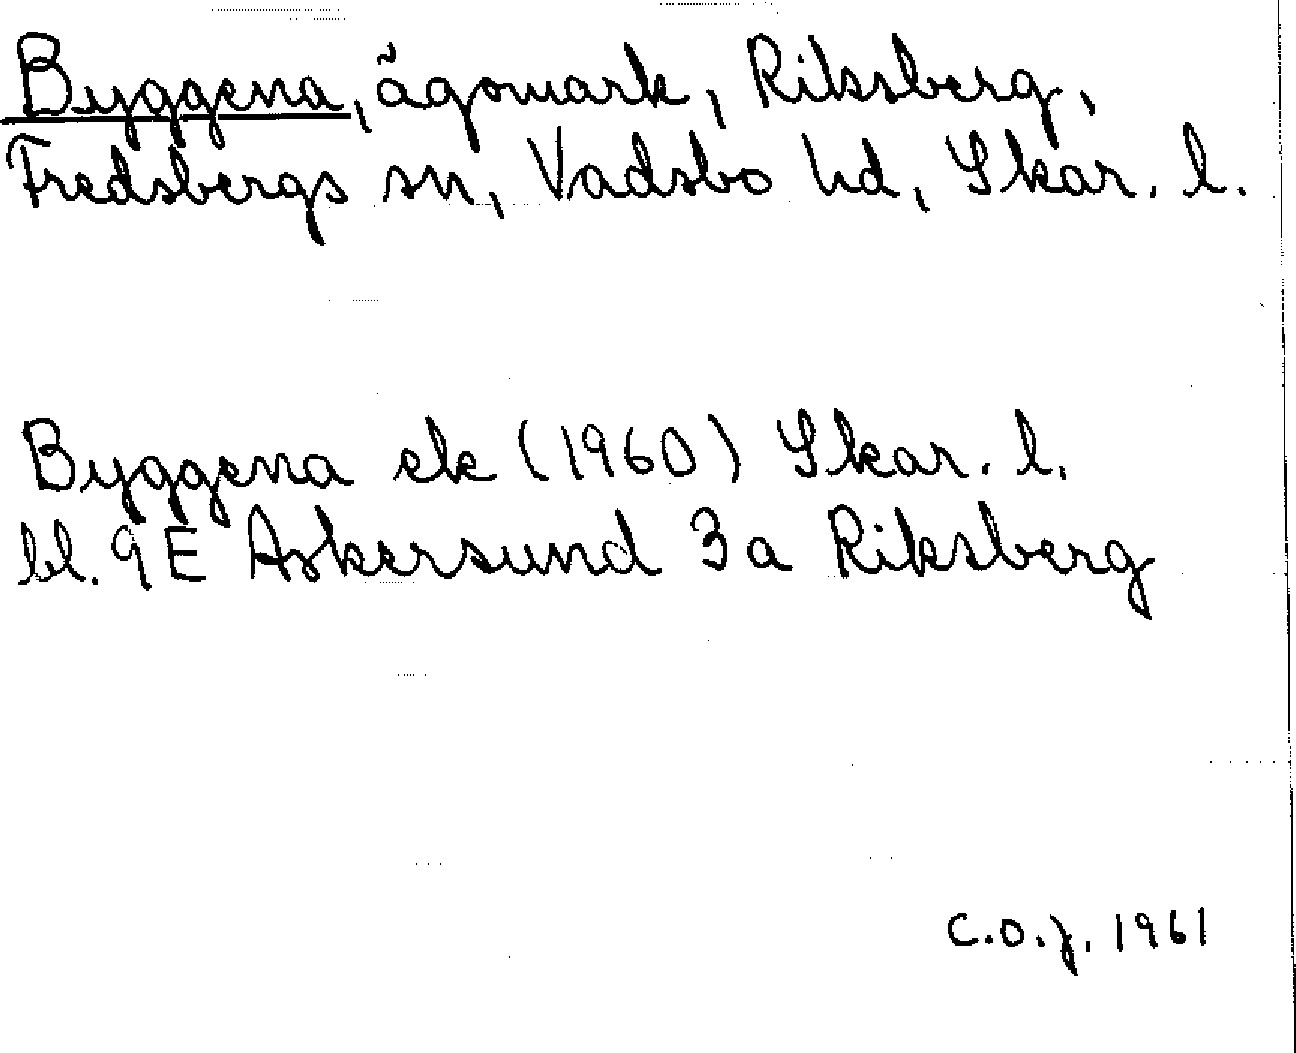 Byggena, ägomark, Riksberg,
Fredsbergs sn, Vadsbo hd, Skar. l.
Byggena ek (1960) Skar. l.
bl. 9E Askersund 3a Riksberg
C.O.J. 1961